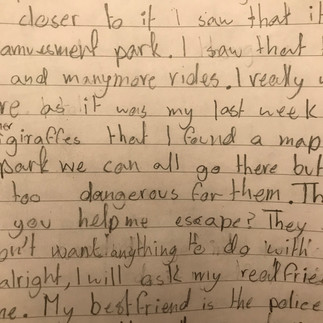 closer to it I saw that it
amusment park. I saw that
and manymore rides. I really
re as it was my last week
giraffes that I found a map
park we can all go there but
too dangerous for them. Th
you help me escape? They
on't want anything to do with
alright, I will ask my real frie
ne. My bestfriend is the police